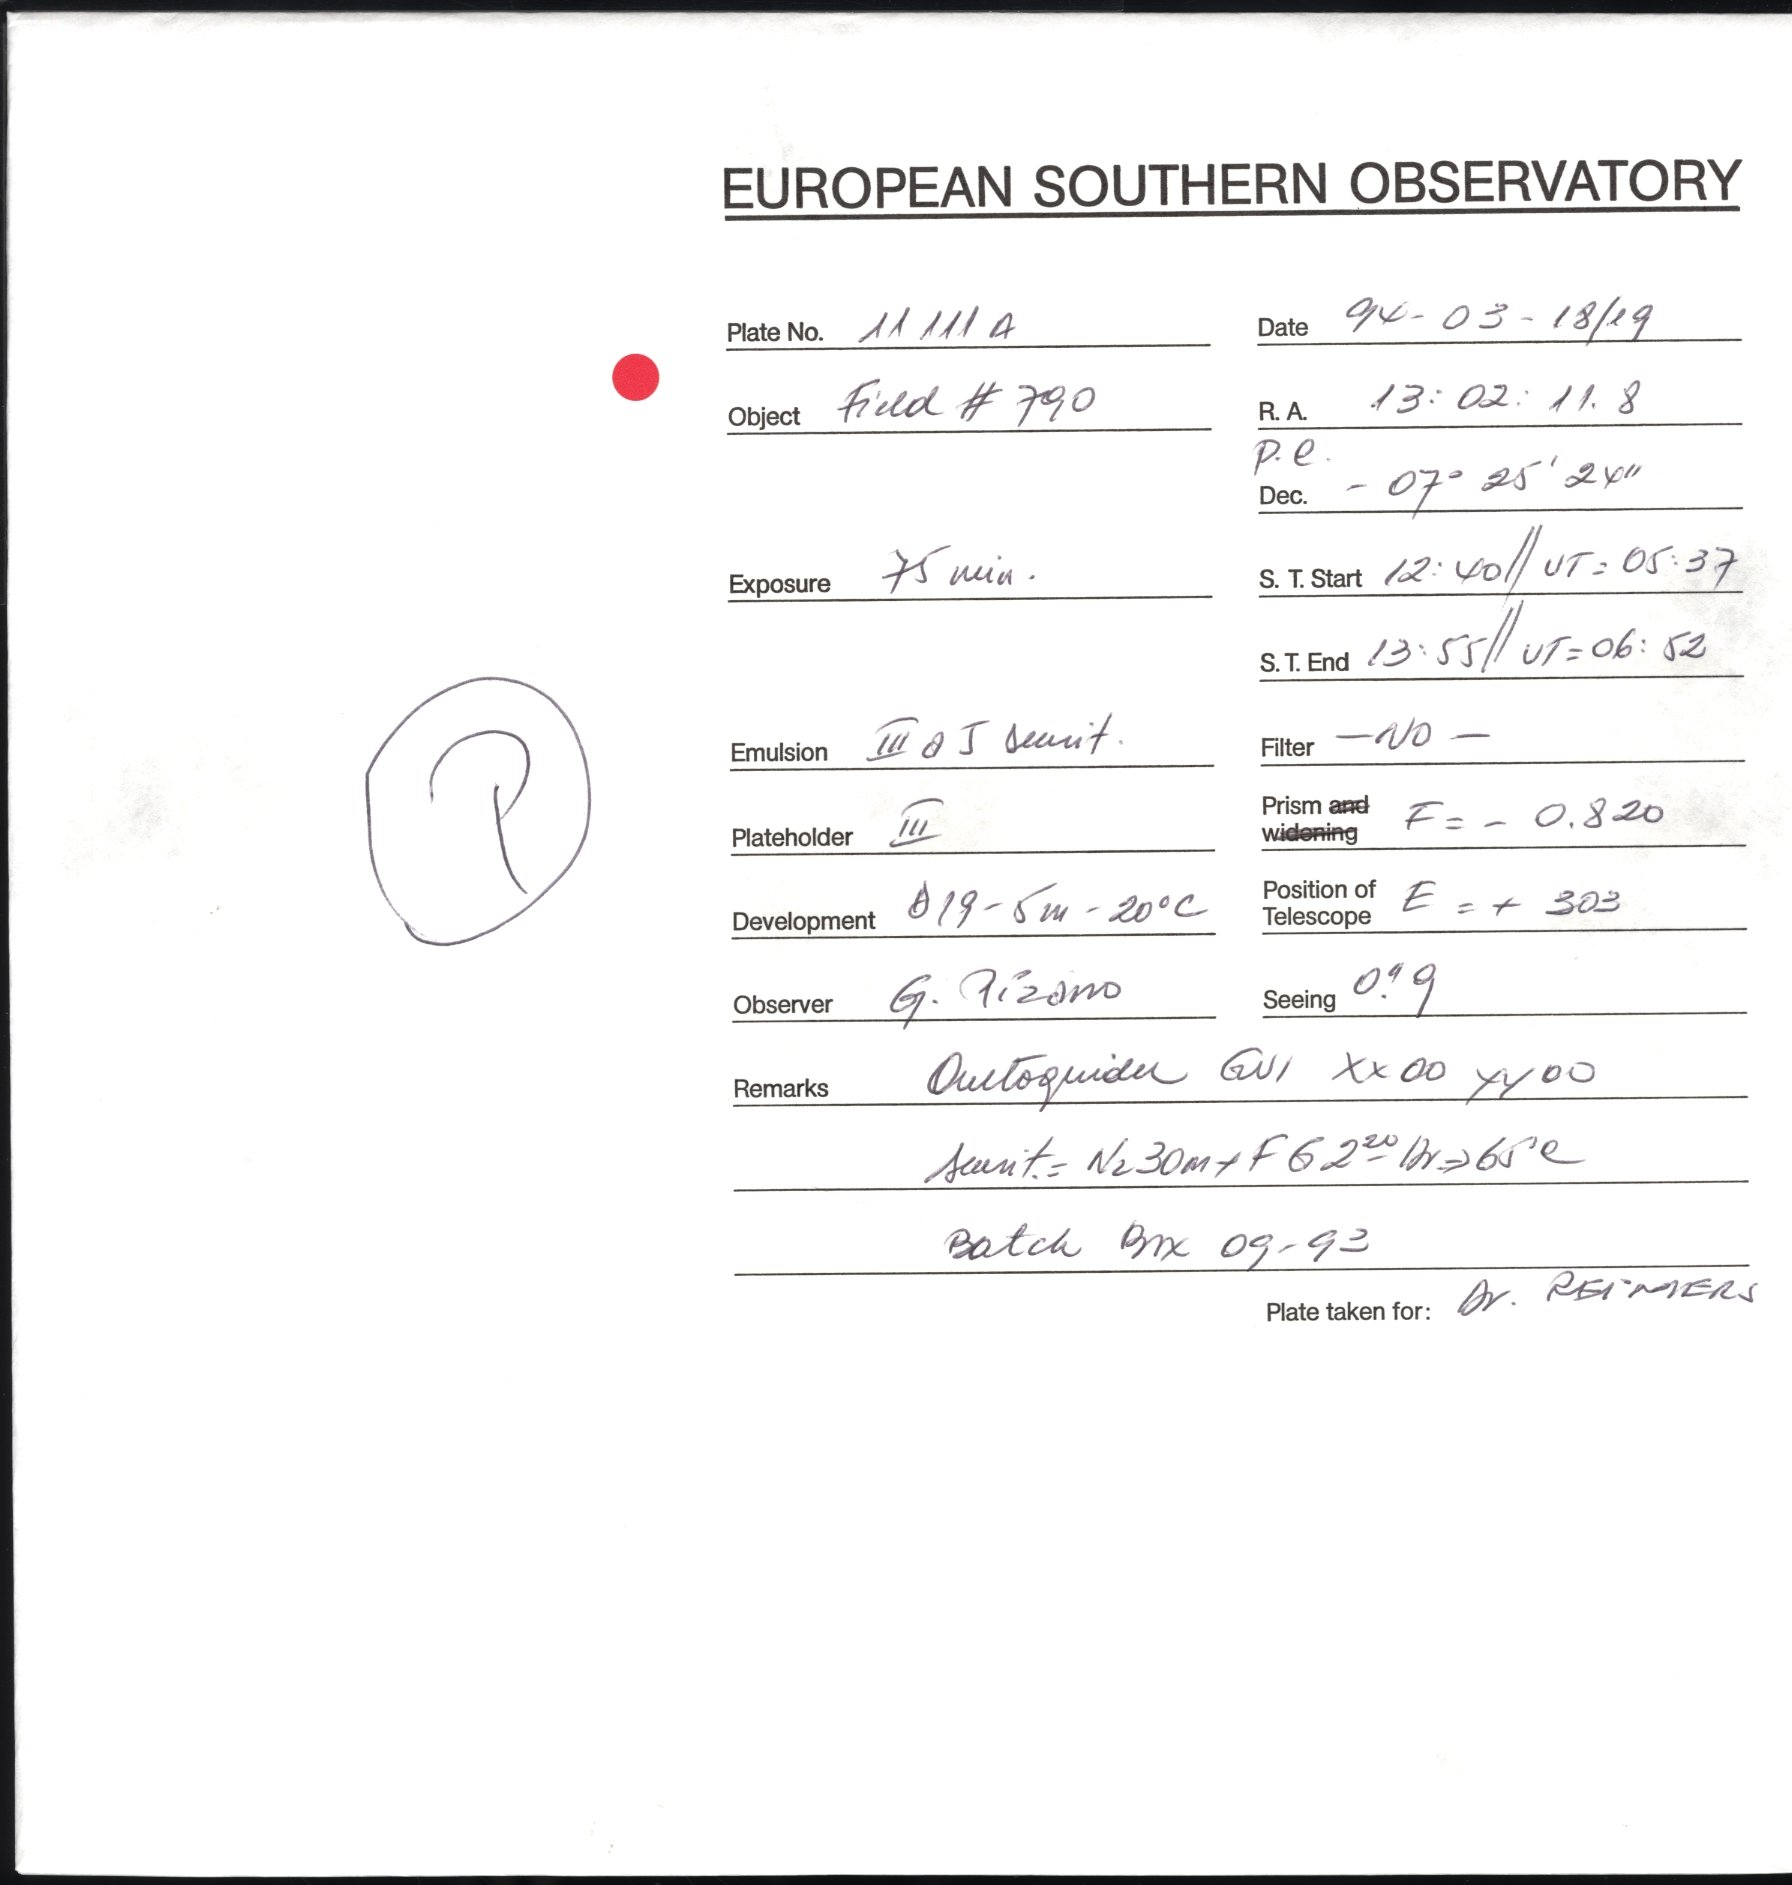 EUROPEAN SOUTHERN OBSERVATORY
Plate No. 11 111 A
Date 94-03-18/19
Object Field # 790
R. A. 13: 02: 11.8
P. e.
Dec. - 07° 25' 24"
Exposure 75 min.
S. T. Start 12:40// UT= 05:37
S. T. End 13:55// UT=06:52
Emulsion III a J sensit.
Filter —NO—
Prism and widening F= - 0.820
Plateholder III
Development D19-5m-20°C
Position of Telescope E = + 303
Observer G. Pizarro
Seeing 0."9
Remarks Autoguider GV1 XX00 YY00
sensit.= N2 30m+FG 2 20 hr=>65°C
Batch Box 09-93
Plate taken for: Dr. REIMERS
P